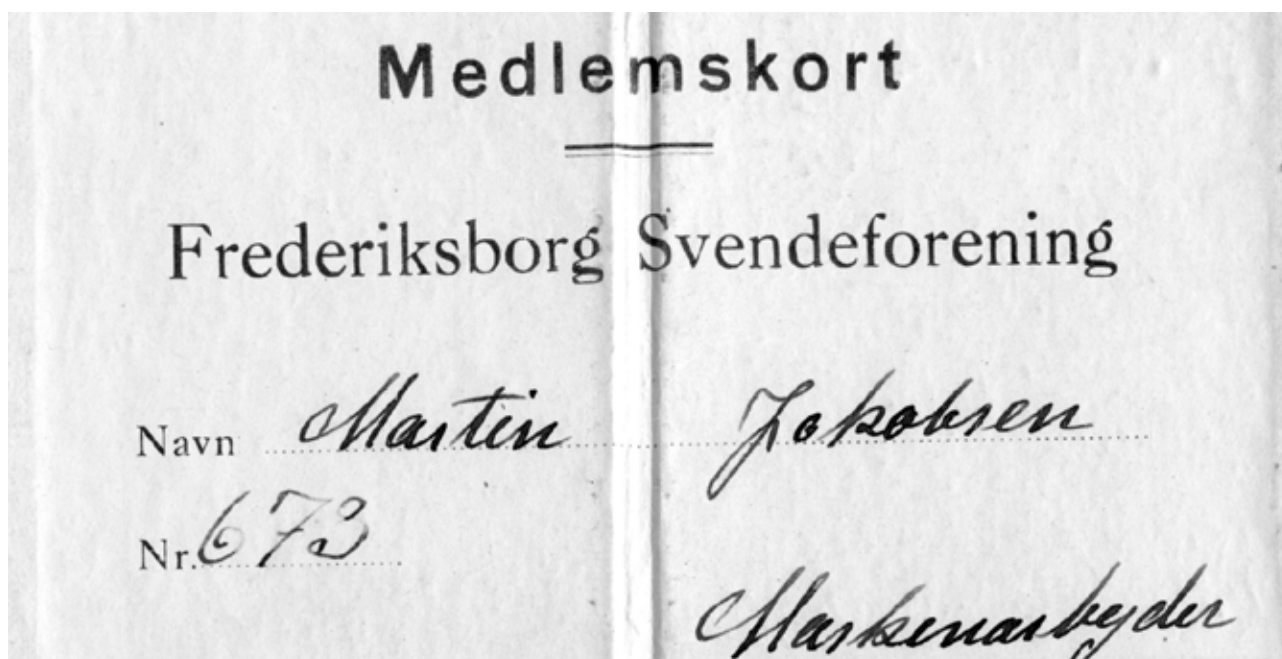 Medlemskort
Frederiksborg Svendeforening
Navn Martin Jakobsen
Nr. 673
Maskenarbyder